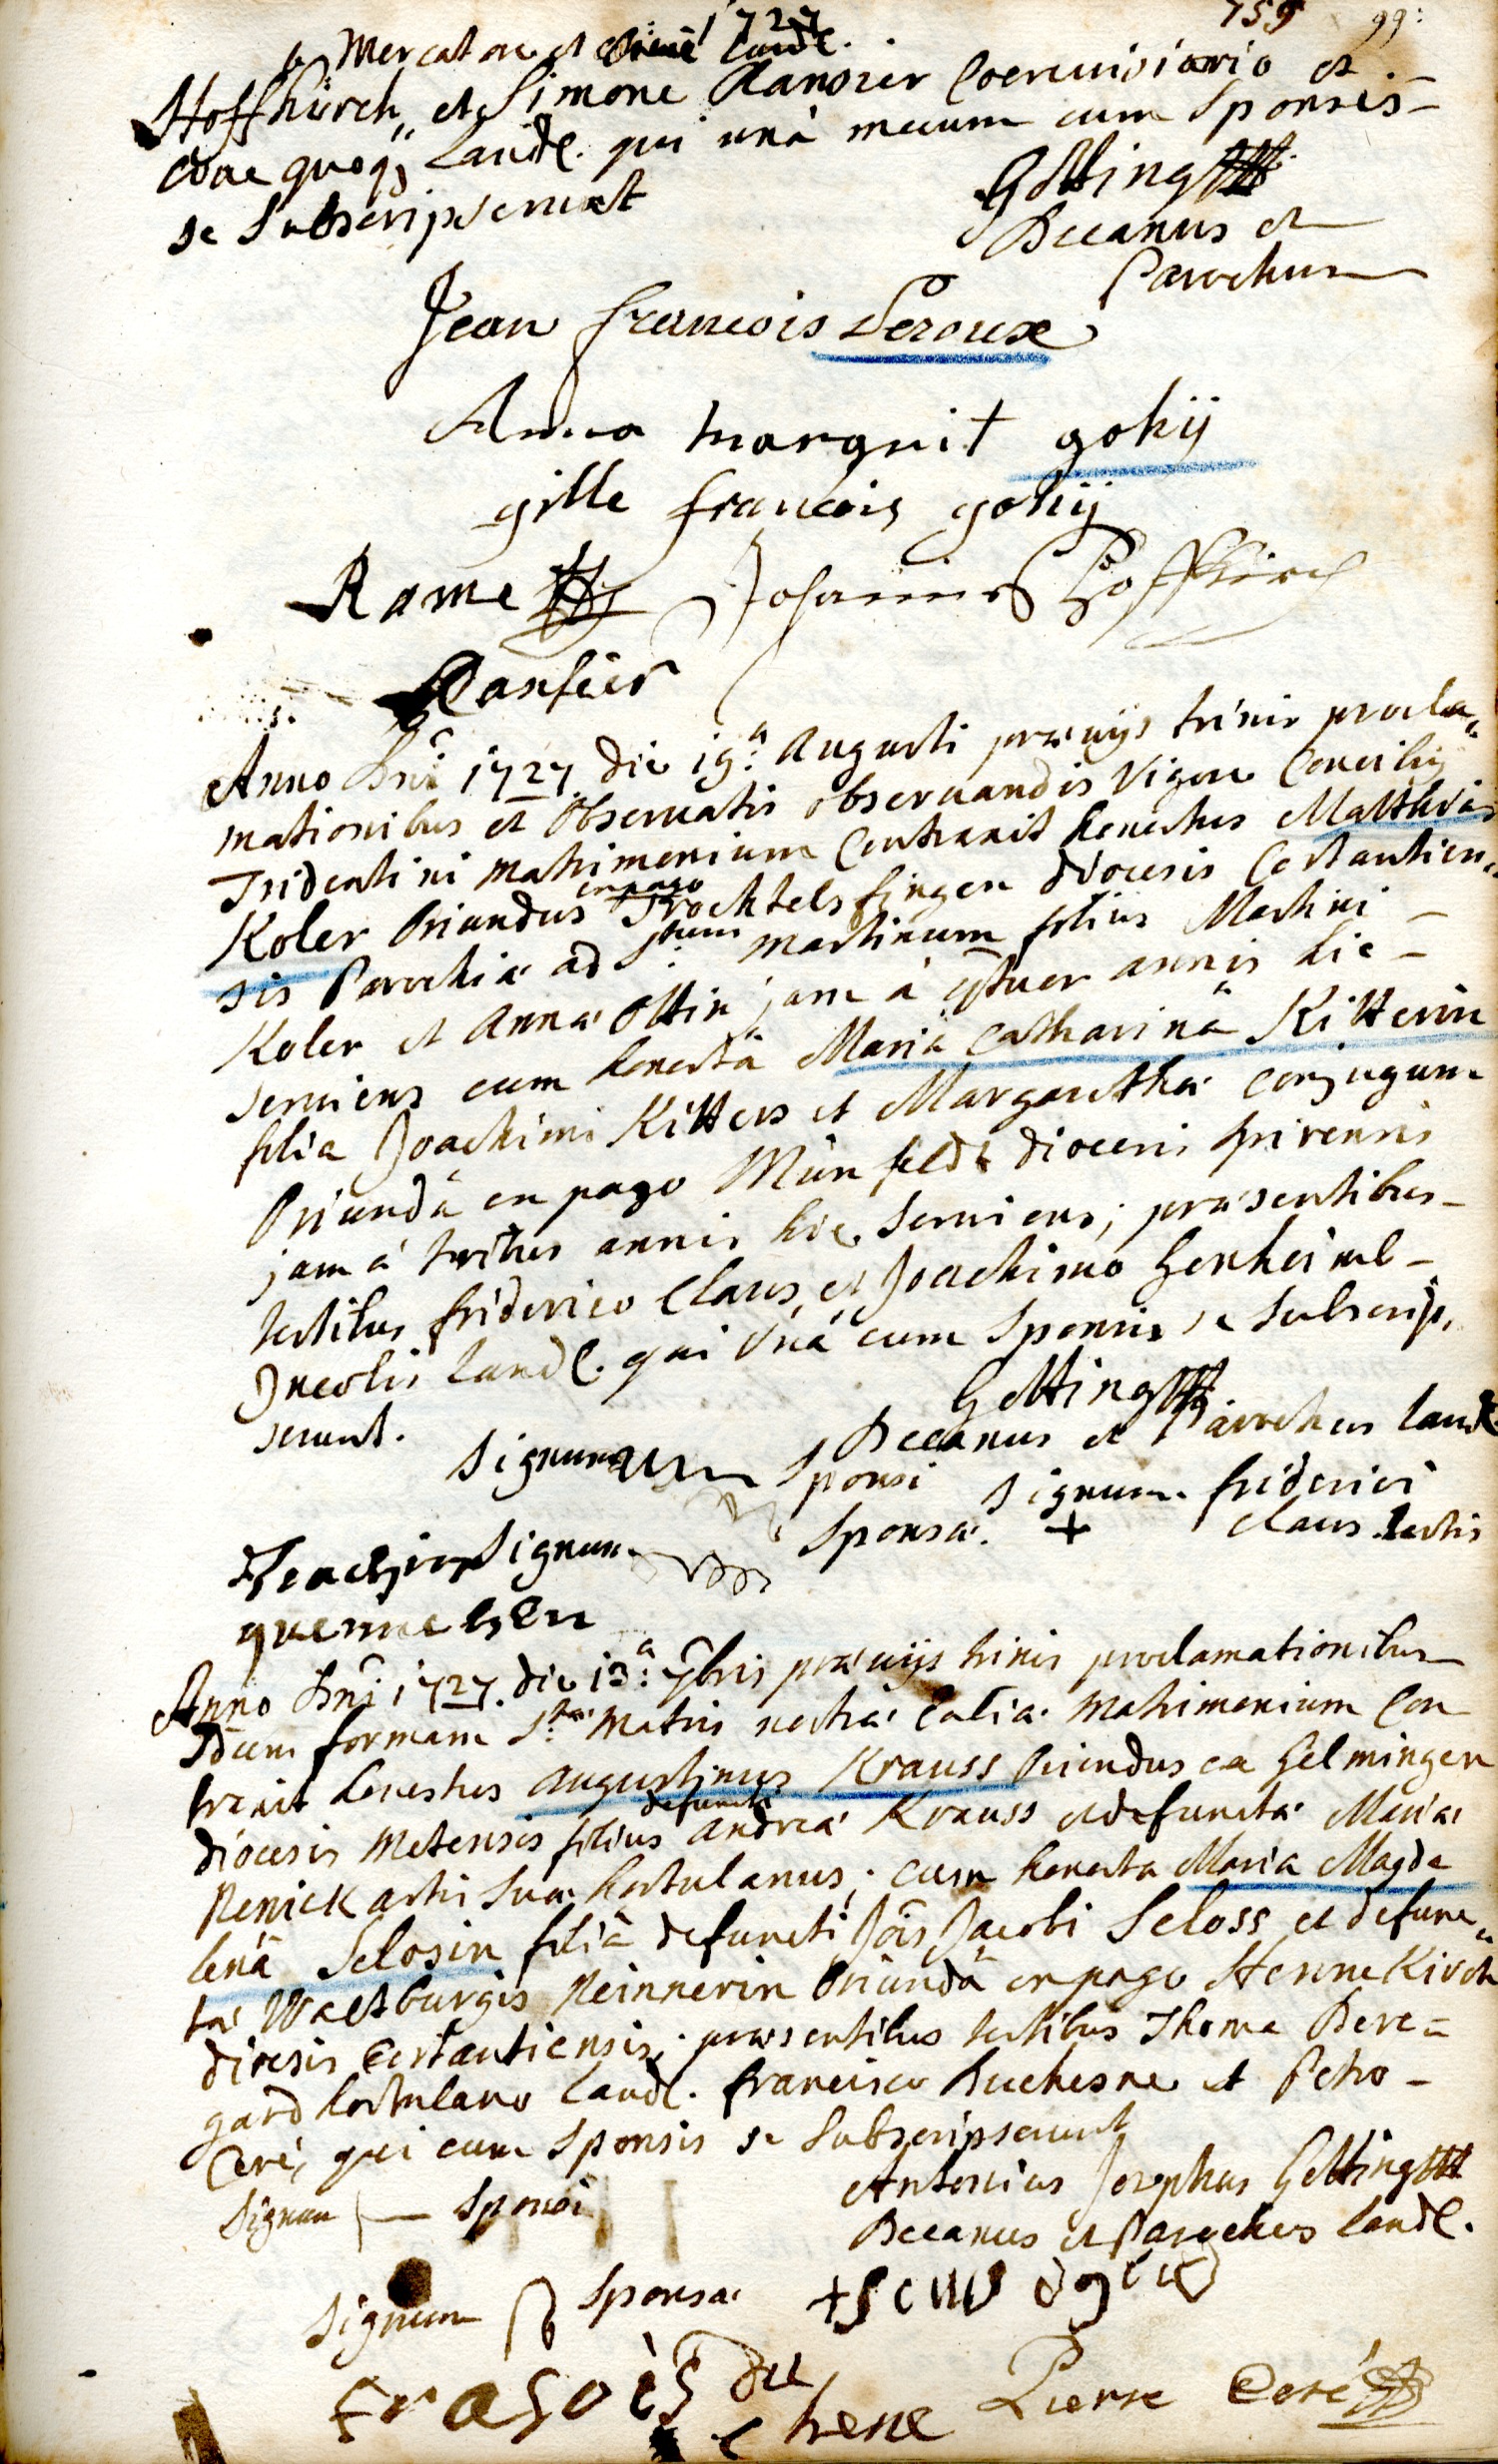 1727
759 99:
Mercatore et Cive Landl.
Hoffkirch, et Simone Ranszer Coerevisiario et
Cive quoq; Landl. qui unà mecum cum Sponsis
se Subscripserunt
Götting
Decanus et
Parochus
Jean francois Leroux
Anna margrit gohij
gille francois gohij
Rame Johannes Hoffkirch
Anno Dni 1727 die 19a Augusti prævijs trinis procla
mationibus et Observatis observandis Vigore Concilij
Tridentini matrimonium Contraxit honestus Matthias
Koler Oriundus ex pago Trochtelsfingen diocesis Costantien
sis Parochiæ ad Stum Martinum filius Martini
Koler et Annæ Ottin jam à qtuor annis hic
serviens cum honestâ Mariâ Catharinâ Kitterin
filia Joachimi Kitters et Margarethæ Conjugum
Oriundâ ex pago Münfeldt diocesis Spirensis
jam à tribus annis hic Serviens; præsentibus
testibus friderico Claus et Joachimo Henheimb
Incolis Landl. qui Unâ cum Sponsis se Subscrip
serunt.
Götting
Decanus et Parochus Landl
Signum Sponsi Signum friderici
Signum Sponsæ. + Claus testis
Anno Dni 1727. die 13a 7bris prævijs trinis proclamationibus
Sdum formam Stæ Matris nostræ Ecclæ Matrimonium Con
traxit honestus Augustinus Krauss Oriundus ex Helmingen
diocesis Metensis filius defuncti Andreæ Krauss et defunctæ Mariæ
Renick artis suæ hortulanus; cum honesta Maria Magda
lenâ Selosin filiâ defuncti Jois Jacobi Seloss et defunc
tæ Waltburgis Reinnerin Oriundâ ex pago Hennekirch
diocesis Costantiensis; præsentibus testibus Thoma Bere
gard hortulano Landl. francisco Duchesne et Petro
Ceré, qui cum Sponsis se Subscripserunt
Antonius Josephus Götting
Decanus et Parochus Landl.
Signum Sponsi
Signum Sponsæ
Frasois du
chene
Pierre Ceré